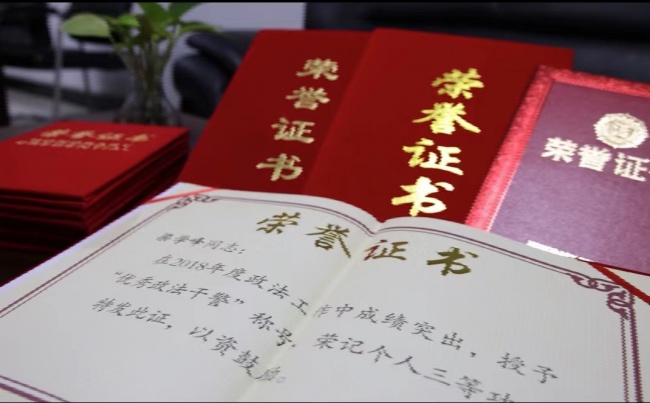 荣誉证书
荣誉证书
荣誉证书
荣誉证
荣誉证书
学峰同志：
在2018年度政法工作中成绩突出，授予
“优秀政法干警”称号，荣记个人三等功
特发此证，以资鼓励。